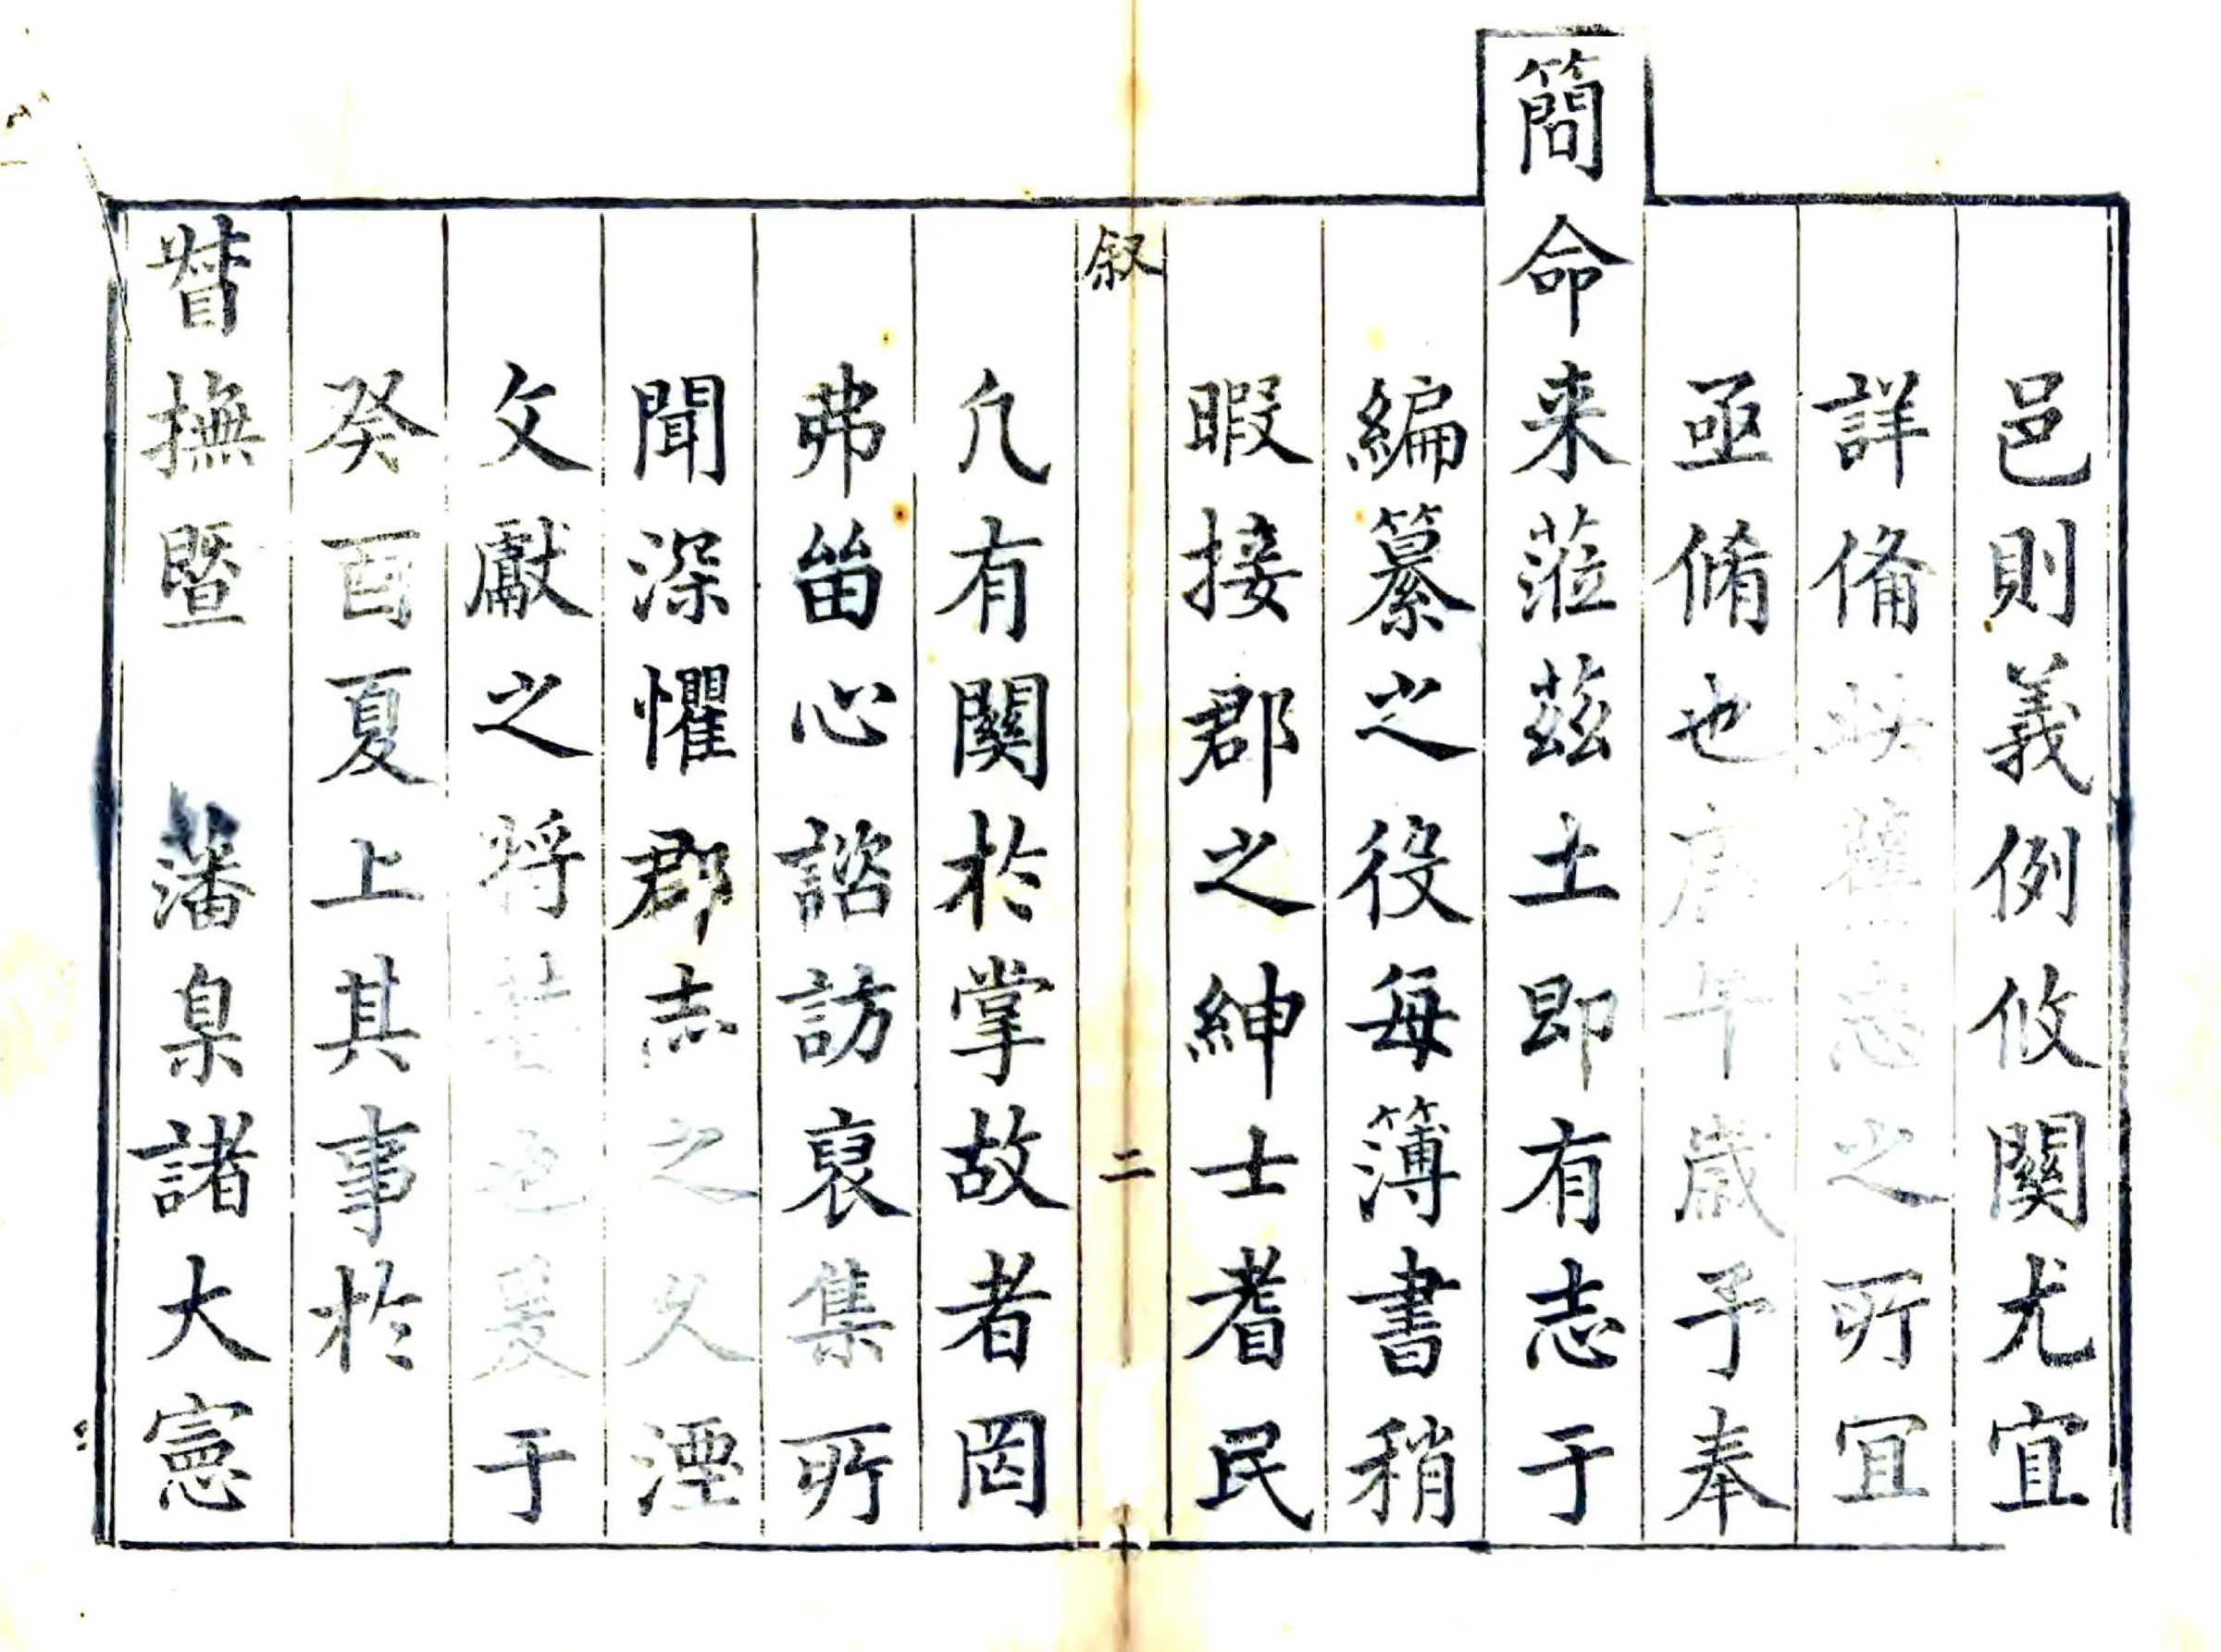 邑則義例攸關尤宜
詳俻此舊志之所宜
亟脩也庚午歲予奉
簡命来蒞茲土即有志于
編纂之役每簿書稍
暇接郡之紳士耆民
叙
二
凢有關於掌故者罔
弗畱心諮訪裒集所
聞深懼郡志之久湮
文獻之將
于
癸酉夏上其事於
督撫暨 藩臬諸大憲